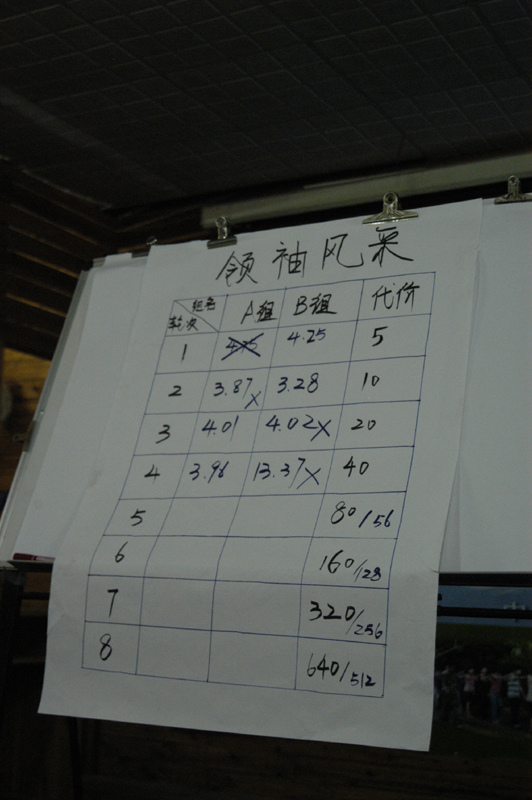 领袖风采
组名 A组 B组 代价
轮次
1 4.25 5
2 3.87x 3.28 10
3 4.01 4.02x 20
4 3.96 13.37x 40
5 80/56
6 160/128
7 320/256
8 640/512